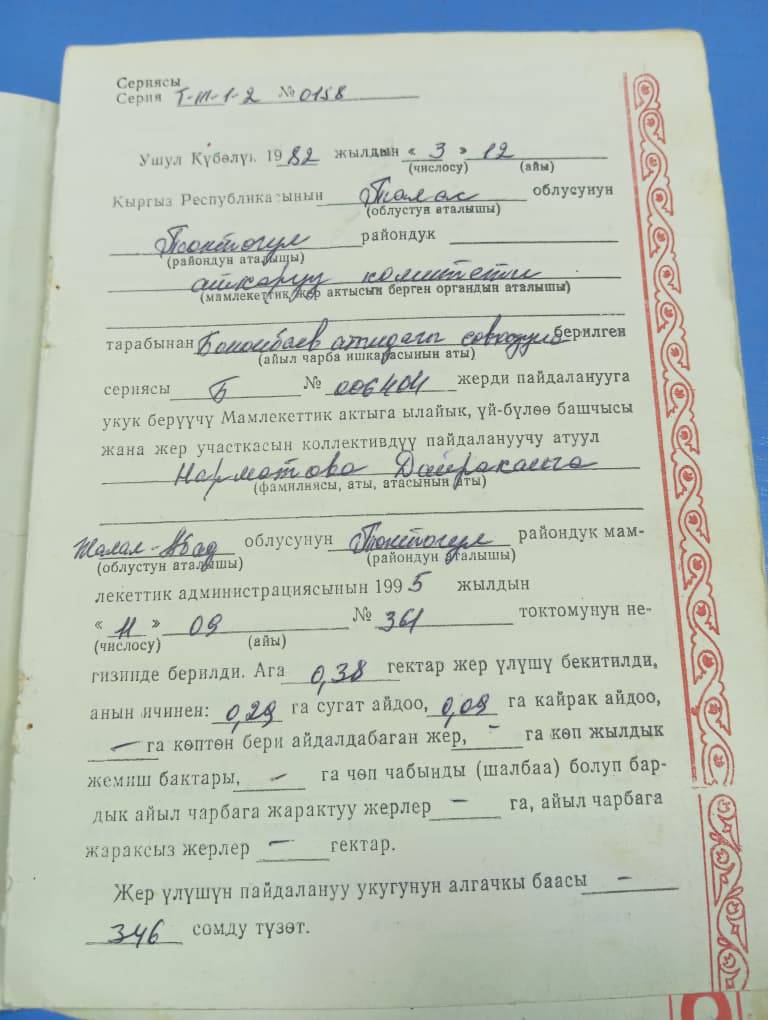 Сериясы
Серия Т-Ш-1-2 № 0158
Ушул Күбөлүк 1982 жылдын « 3 » 12
(числосу) (айы)
Кыргыз Республикасынын Талас облусунун
(облустун аталышы)
Токтогул райондук
(райондун аталышы)
аткаруу комитети
(мамлекеттик жер актысын берген органдын аталышы)
тарабынан Боконбаев атындагы совхозуна берилген
(айыл чарба ишкарасынын аты)
сериясы Б № 006404 жерди пайдаланууга
укук берүүчү Мамлекеттик актыга ылайык, үй-бүлөө башчысы
жана жер участкасын коллективдүү пайдалануучу атуул
Нарматова
(фамилиясы, аты, атасынын аты)
Жалал-Абад облусунун Токтогул райондук мам-
(облустун аталышы) (райондун аталышы)
лекеттик администрациясынын 1995 жылдын
« 11 » 09 № 361 токтомунун не-
(числосу) (айы)
гизинде берилди. Ага 0,38 гектар жер үлүшү бекитилди,
анын ичинен: 0,29 га сугат айдоо, 0,09 га кайрак айдоо,
— га көптөн бери айдалдабаган жер, - га көп жылдык
жемиш бактары, - га чөп чабынды (шалбаа) болуп бар-
дык айыл чарбага жарактуу жерлер - га, айыл чарбага
жараксыз жерлер — гектар.
Жер үлүшүн пайдалануу укугунун алгачкы баасы -
346 сомду түзөт.